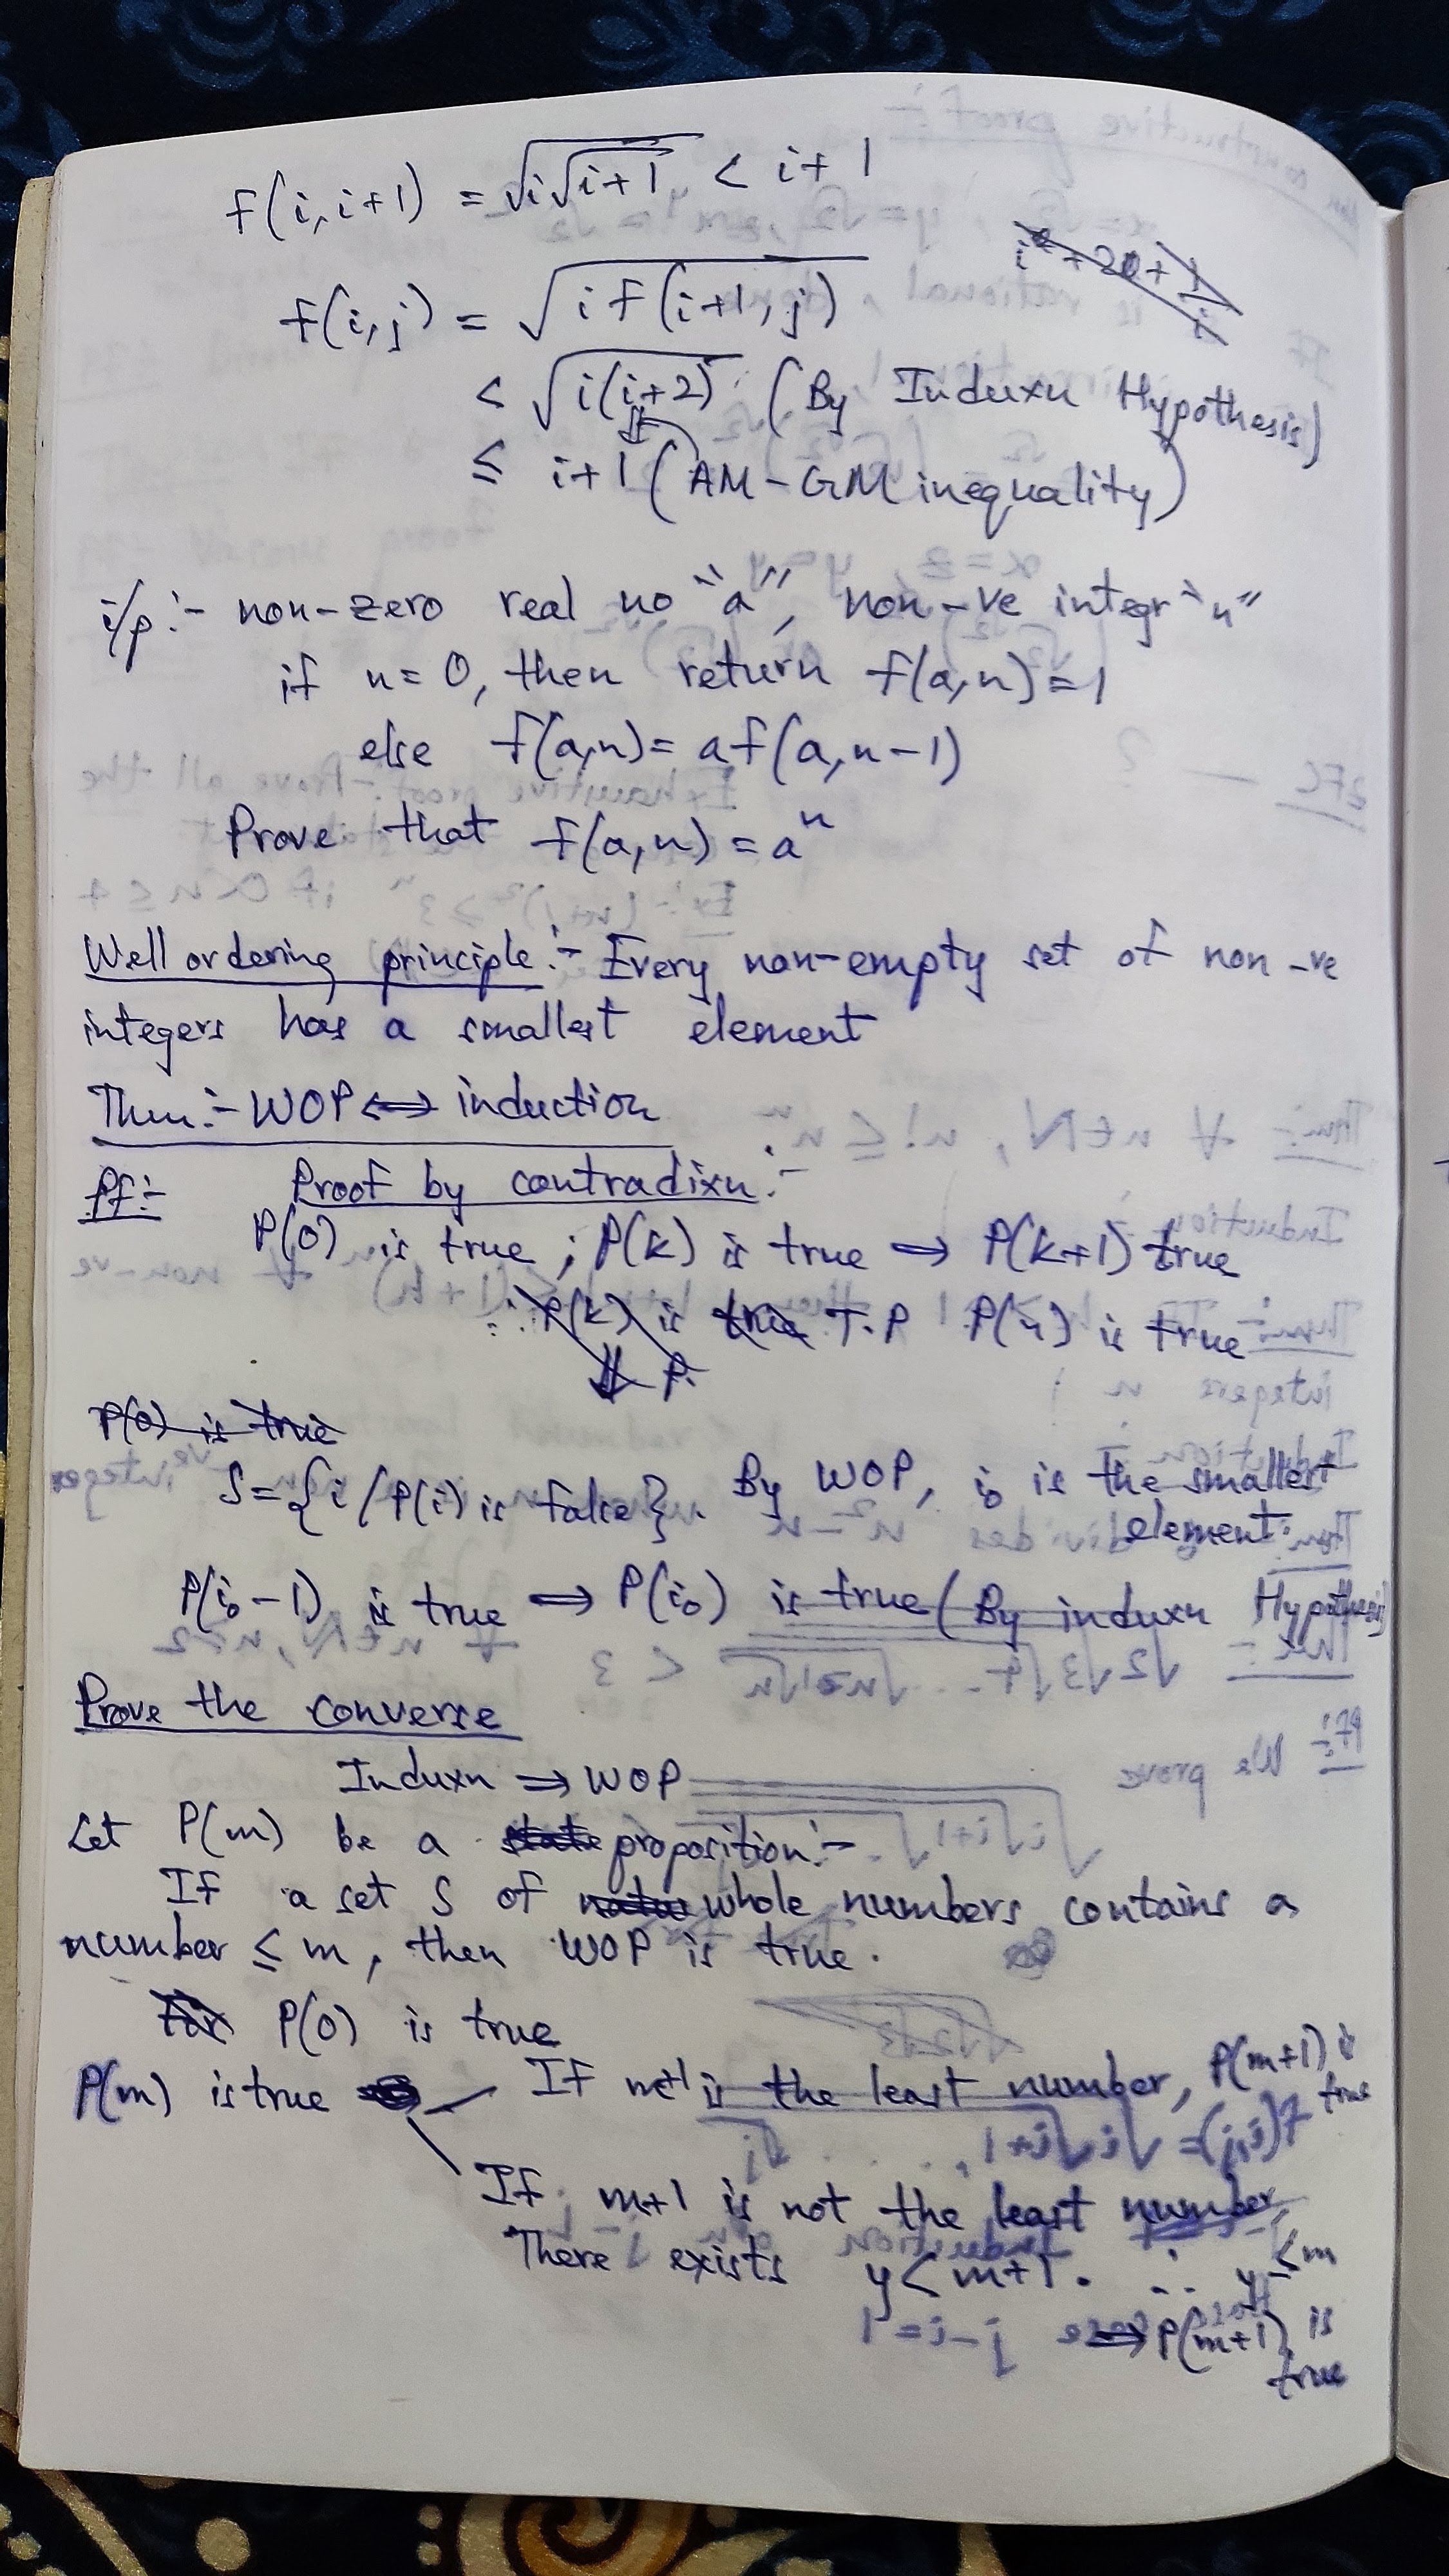 f(i, i+1) = √i√i+1 < i+1
f(i,j) = √i f(i+1, j)
< √i(i+2) (By Induxn Hypothesis)
≤ i+1 (AM-GM inequality)
i/p :- non-zero real no "a", non-ve integr "n"
if n=0, then return f(a,n)=1
else f(a,n)= a f(a, n-1)
Prove that f(a,n) = aⁿ
Well ordering principle :- Every non-empty set of non-ve
integers has a smallest element
Thm :- WOP ⟺ induction
Pf :- Proof by contradixn :-
P(0) is true ; P(k) is true ⟹ P(k+1) true
∴ P(k) is true T.P P(n) is true
⇓ P.
P(0) is true
S = {i / P(i) is false}. By WOP, i₀ is the smallest
element.
P(i₀-1) is true ⟹ P(i₀) is true (By induxn Hypothesis)
Prove the converse
Induxn ⟹ WOP
Let P(m) be a state proposition :-
If a set S of whole numbers contains a
number ≤ m, then WOP is true.
For P(0) is true
P(m) is true If m+1 is the least number, P(m+1) is
true
If m+1 is not the least number,
There exists y < m+1. ∴ y ≤ m
⟹ P(m+1) is
true